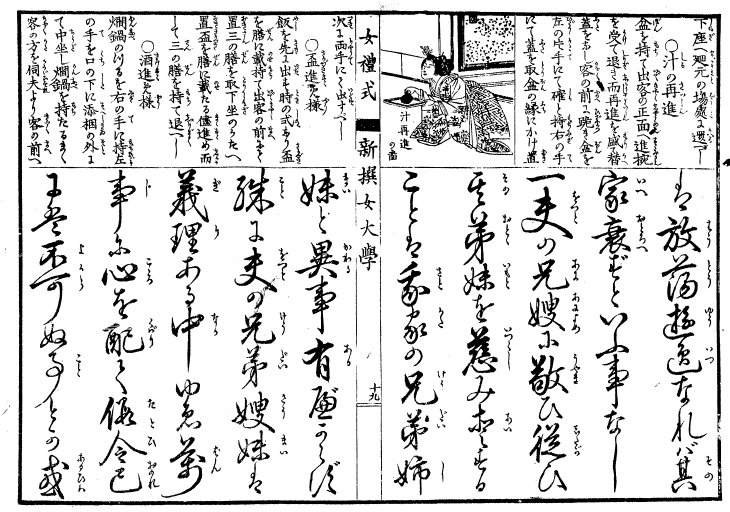 下座へ廻元の場處に還べし
○汁の再進
盆を持て出客の正面へ進掩
を受て退き而再進を盛替
蓋をなし客の前に跪き盆を
左の片手にて確と持右の手
にて蓋を取盆の縁にかけ置
汁再進
の圖
は放蕩遊逸なれバ其
家衰ずといふ事なし
一夫の兄嫂に敬ひ従ひ
其弟妹を慈み愛する
ことは我家の兄弟姉
女禮式
新撰女大學
十九
次に両手にて出すべし
○盃進る様
飯を先に出す時の式なり盃
を膳に載持て出客の前
置三の膳を取下坐のかたへ
置盃を膳に載たる儘進め而
して三の膳を持て退べし
○酒進る様
燗鍋のつるを右の手に持左
の手を口の下に添相の外に
て中坐し燗鍋を持たるまく
客の方を伺夫より客の前へ
妹と異事有べからず
殊に夫の兄弟嫂妹は
義理ある中ゆゑ萬
事に心を配て假令己
不可ぬ事との或